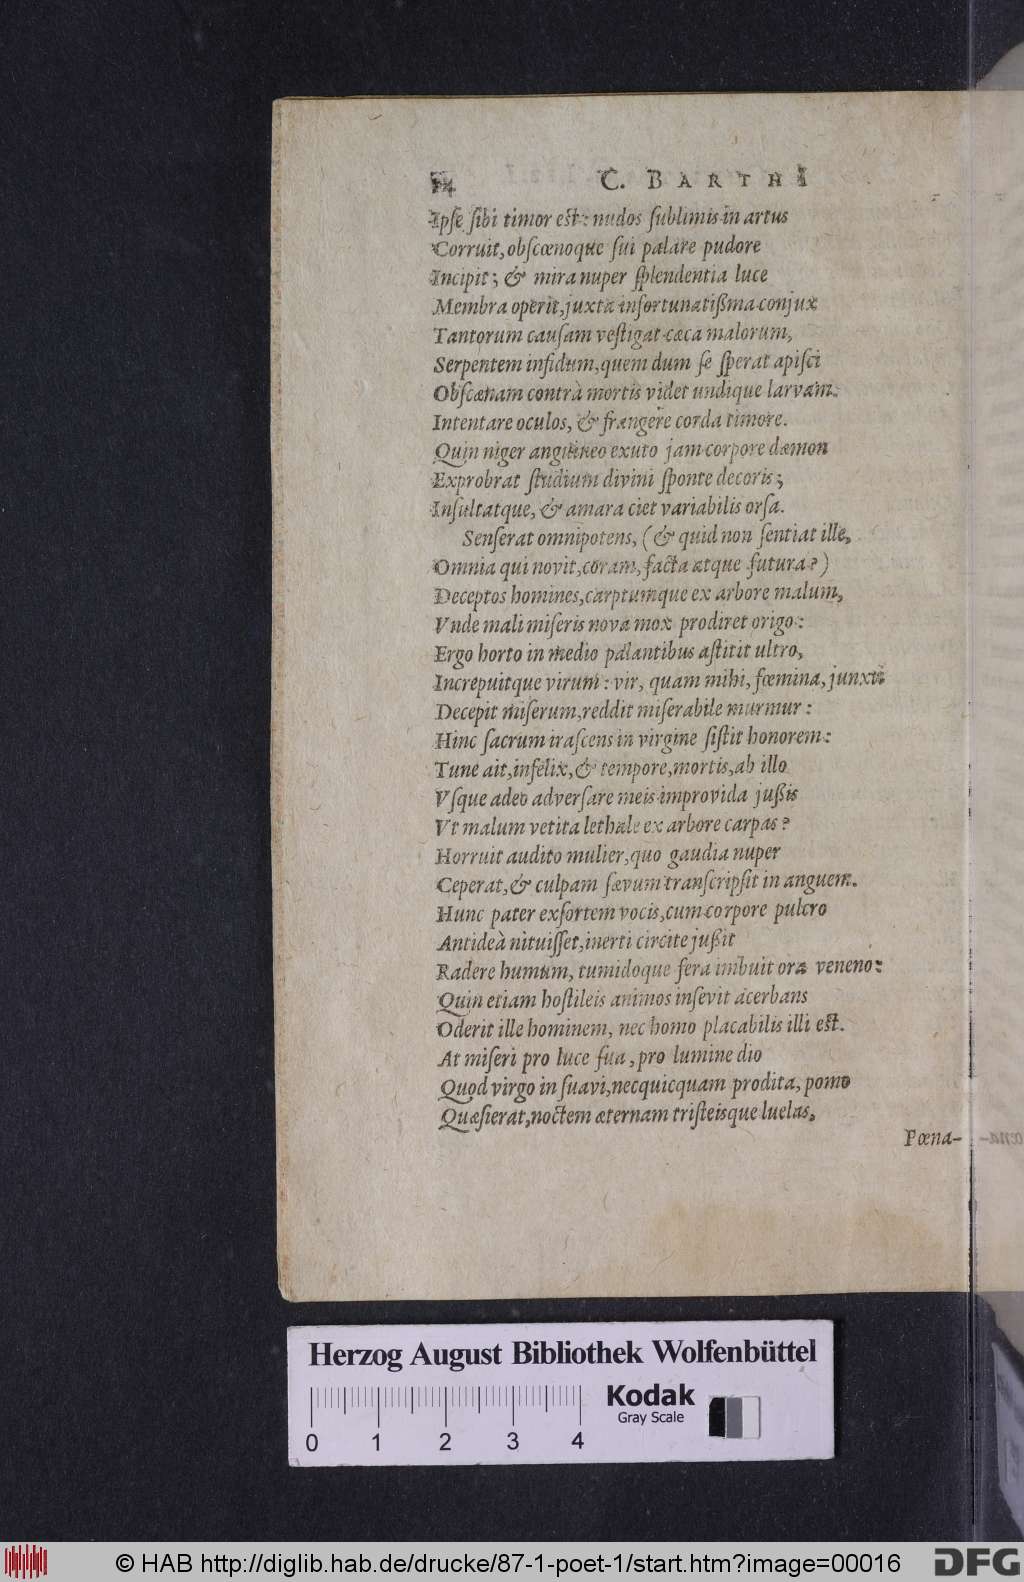 14 C. BARTHI
Ipſe ſibi timor eſt: nudos ſublimis in artus
Corruit, obſcœnoque ſui palare pudore
Incipit; & mira nuper ſplendentia luce
Membra operit, juxta infortunatiſsma conjux
Tantorum cauſam veſtigat cæca malorum,
Serpentem infidum, quem dum ſe ſperat apiſci
Obſcænam contrà mortis videt undique larvam.
Intentare oculos, & frangere corda timore.
Quin niger anguineo exuto jam corpore dæmon
Exprobrat ſtudium divini ſponte decoris;
Inſultatque, & amara ciet variabilis orſa.
Senſerat omnipotens, (& quid non ſentiat ille,
Omnia qui novit, coram, facta atque futura?)
Deceptos homines, carptumque ex arbore malum,
Vnde mali miſeris nova mox prodiret origo:
Ergo horto in medio palantibus aſtitit ultro,
Increpuitque virum: vir, quam mihi, fœmina, junxti
Decepit miſerum, reddit miſerabile murmur:
Hinc ſacrum iraſcens in virgine ſiſtit honorem:
Tune ait, infelix, & tempore, mortis, ab illo
Vſque adeo adverſare meis improvida juſsis
Vt malum vetita lethale ex arbore carpas?
Horruit audito mulier, quo gaudia nuper
Ceperat, & culpam ſævum tranſcripſit in anguem.
Hunc pater exſortem vocis, cum corpore pulcro
Antideà nituiſſet, inerti circite juſsit
Radere humum, tumidoque fera imbuit ora veneno:
Quin etiam hoſtileis animos inſevit acerbans
Oderit ille hominem, nec homo placabilis illi eſt.
At miſeri pro luce ſua, pro lumine dio
Quod virgo in ſuavi, necquicquam prodita, pomo
Quæſierat, noctem æternam triſteisque luelas,
Pœna-
Herzog August Bibliothek Wolfenbüttel
Kodak
Gray Scale
0 1 2 3 4
© HAB http://diglib.hab.de/drucke/87-1-poet-1/start.htm?image=00016
DFG